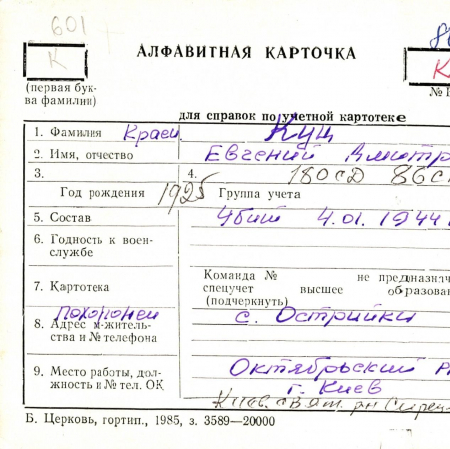 601
К
АЛФАВИТНАЯ КАРТОЧКА
(первая бук-
ва фамилии)
для справок по учетной картотеке
1. Фамилия Красн Кущ
2. Имя, отчество Евгений Дмитр
3. 4. 180 сд 86 с
Год рождения 1925 Группа учета
5. Состав Убит 4.01.1944
6. Годность к воен-
службе
Команда № не предназнач
7. Картотека спецучет высшее образован
(подчеркнуть)
похоронен с. Острийки
8. Адрес м-житель-
ства и № телефона
9. Место работы, дол-
жность и № тел. ОК
Октябрьский
г. Киев
Б. Церковь, гортип., 1985, з. 3589—20000